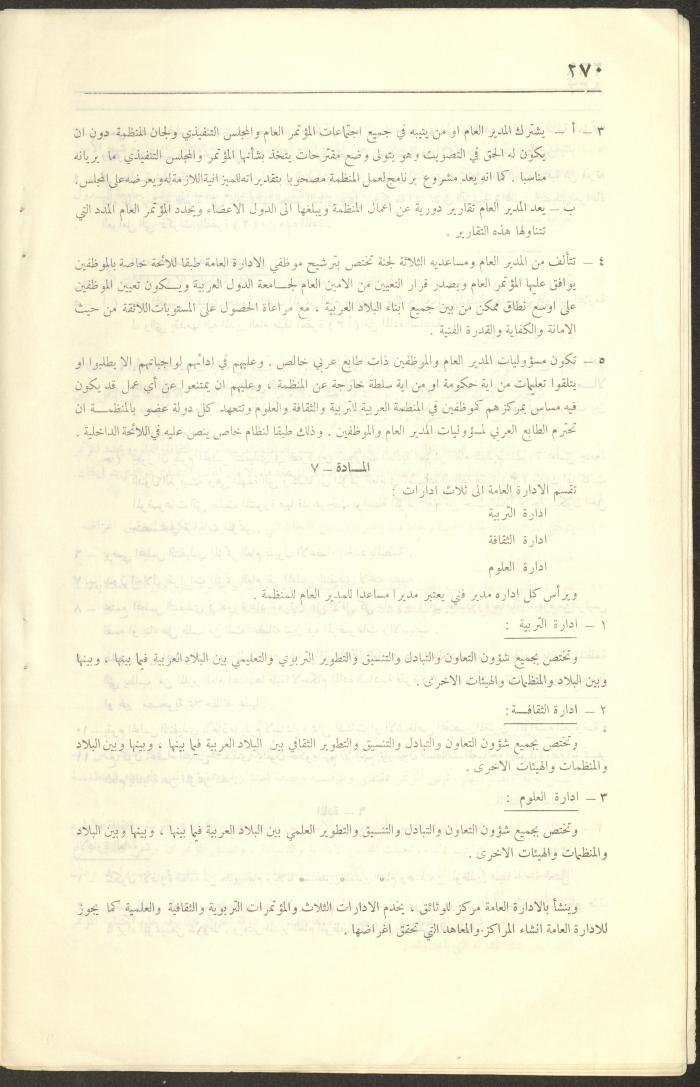 ٢٧٠
٣ – أ – يشترك المدير العام او من ينيبه في جميع اجتماعات المؤتمر العام والمجلس التنفيذي ولجان المنظمة دون ان
يكون له الحق في التصويت وهو يتولى وضع مقترحات يتخذ بشأنها المؤتمر والمجلس التنفيذي ما يريانه
مناسبا . كما انه يعد مشروع برنامج لعمل المنظمة مصحوبا بتقديراته للميزانية اللازمة له ويعرضه على المجلس.
ب – يعد المدير العام تقارير دورية عن اعمال المنظمة ويبلغها الى الدول الاعضاء ويحدد المؤتمر العام المدد التي
تتناولها هذه التقارير .
٤ – تتألف من المدير العام ومساعديه الثلاثة لجنة تختص بترشيح موظفي الادارة العامة طبقا للائحة خاصة بالموظفين
يوافق عليها المؤتمر العام ويصدر قرار التعيين من الامين العام لجامعة الدول العربية ويكون تعيين الموظفين
على اوسع نطاق ممكن من بين جميع ابناء البلاد العربية ، مع مراعاة الحصول على المستويات اللائقة من حيث
الامانة والكفاية والقدرة الفنية .
٥ – تكون مسؤوليات المدير العام والموظفين ذات طابع عربي خالص . وعليهم في ادائهم لواجباتهم الا يطلبوا او
يتلقوا تعليمات من اية حكومة او من اية سلطة خارجة عن المنظمة ، وعليهم ان يمتنعوا عن أي عمل قد يكون
فيه مساس بمركزهم كموظفين في المنظمة العربية للتربية والثقافة والعلوم وتتعهد كل دولة عضو بالمنظمة ان
تحترم الطابع العربي لمسؤوليات المدير العام والموظفين . وذلك طبقا لنظام خاص ينص عليه في اللائحة الداخلية .
المادة – ٧
تقسم الادارة العامة الى ثلاث ادارات :
ادارة التربية
ادارة الثقافة
ادارة العلوم
ويرأس كل اداره مدير فني يعتبر مديرا مساعدا للمدير العام للمنظمة .
١ – ادارة التربية :
وتختص بجميع شؤون التعاون والتبادل والتنسيق والتطوير التربوي والتعليمي بين البلاد العربية فيما بينها ، وبينها
وبين البلاد والمنظمات والهيئات الاخرى .
٢ – ادارة الثقافة :
وتختص بجميع شؤون التعاون والتبادل والتنسيق والتطوير الثقافي بين البلاد العربية فيما بينها ، وبينها وبين البلاد
والمنظمات والهيئات الاخرى .
٣ – ادارة العلوم :
وتختص بجميع شؤون التعاون والتبادل والتنسيق والتطوير العلمي بين البلاد العربية فيما بينها ، وبينها وبين البلاد
والمنظمات والهيئات الاخرى .
وينشأ بالادارة العامة مركز للوثائق ، يخدم الادارات الثلاث والمؤتمرات التربوية والثقافية والعلمية كما يجوز
للادارة العامة انشاء المراكز والمعاهد التي تحقق اغراضها .